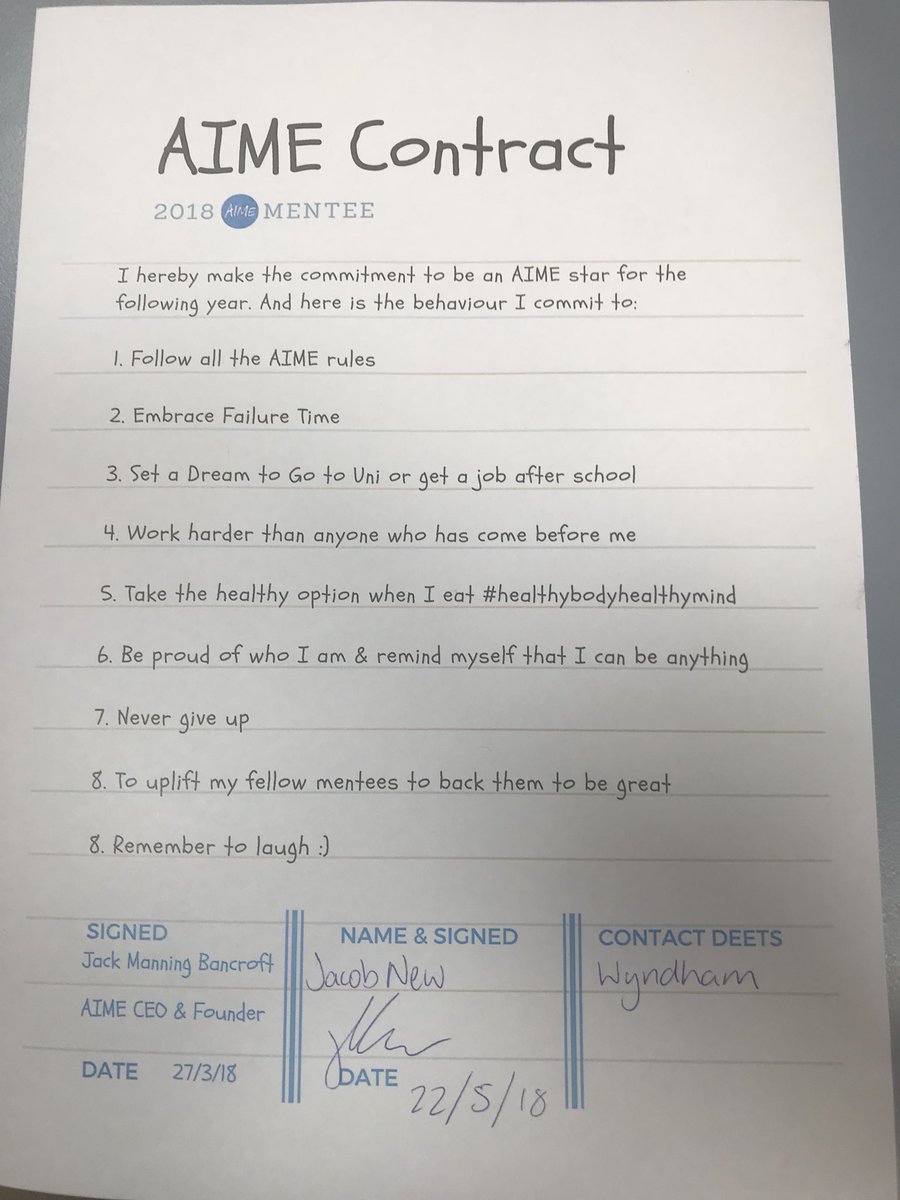 AIME Contract
2018 AIME MENTEE
I hereby make the commitment to be an AIME star for the
following year. And here is the behaviour I commit to:
1. Follow all the AIME rules
2. Embrace Failure Time
3. Set a Dream to Go to Uni or get a job after school
4. Work harder than anyone who has come before me
5. Take the healthy option when I eat #healthybodyhealthymind
6. Be proud of who I am & remind myself that I can be anything
7. Never give up
8. To uplift my fellow mentees to back them to be great
8. Remember to laugh :)
SIGNED
Jack Manning Bancroft
AIME CEO & Founder
DATE 27/3/18
NAME & SIGNED
Jacob New
DATE
22/5/18
CONTACT DEETS
Wyndham